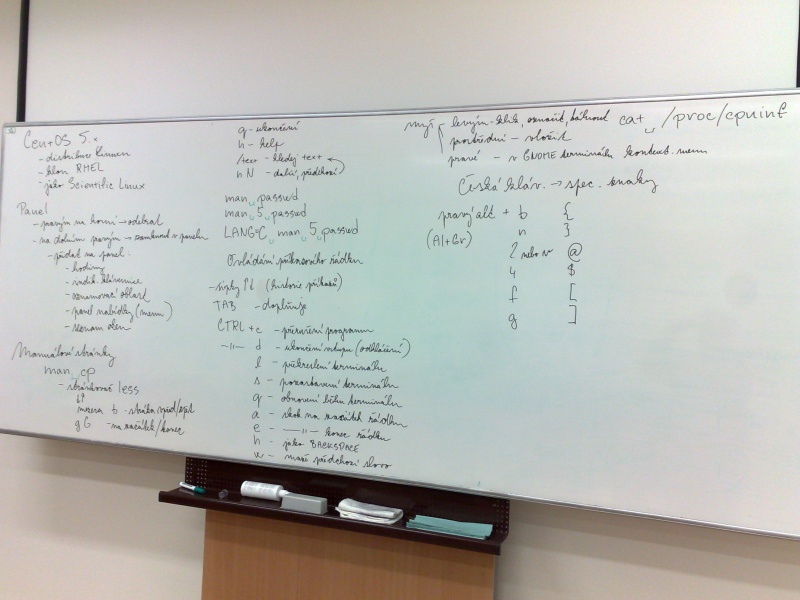 CentOS 5.x
- distribuce Linuxu
- klon RHEL
- jako Scientific Linux
Panel
- pravým na horní → odebrat
- na dolním pravým → v panelu
- přidat na panel:
- hodiny
- indik. klávesnice
- oznamovací oblast
- panel nabídky (menu)
- seznam oken
Manuálové stránky
man␣cp
- stránkovač less
↑↓
mezera b - stránka vpřed/zpět
g G - na začátek/konec
q - ukončení
h - help
/text - hledej text
n N - další, předchozí
man␣passwd
man␣5␣passwd
LANG=C␣man␣5␣passwd
Ovládání příkazového řádku
- šipky ↑↓ (historie příkazů)
TAB - doplňuje
CTRL + c - přerušení programu
-||- d - ukončení vstupu (odhlášení)
l - překreslení terminálu
s - pozastavení terminálu
q - obnovení běhu terminálu
a - skok na začátek řádku
e - -||- konec řádku
h - jako BACKSPACE
w - maže předchozí slovo
myš levým - klik, označit, táhnout
prostřední - vložit
pravé - v GNOME terminálu kontext. menu
cat␣/proc/cpuinf
Česká kláv. → spec. znaky
pravý alt + b {
(Alt+Gr) n }
2 nebo v @
4 $
f [
g ]